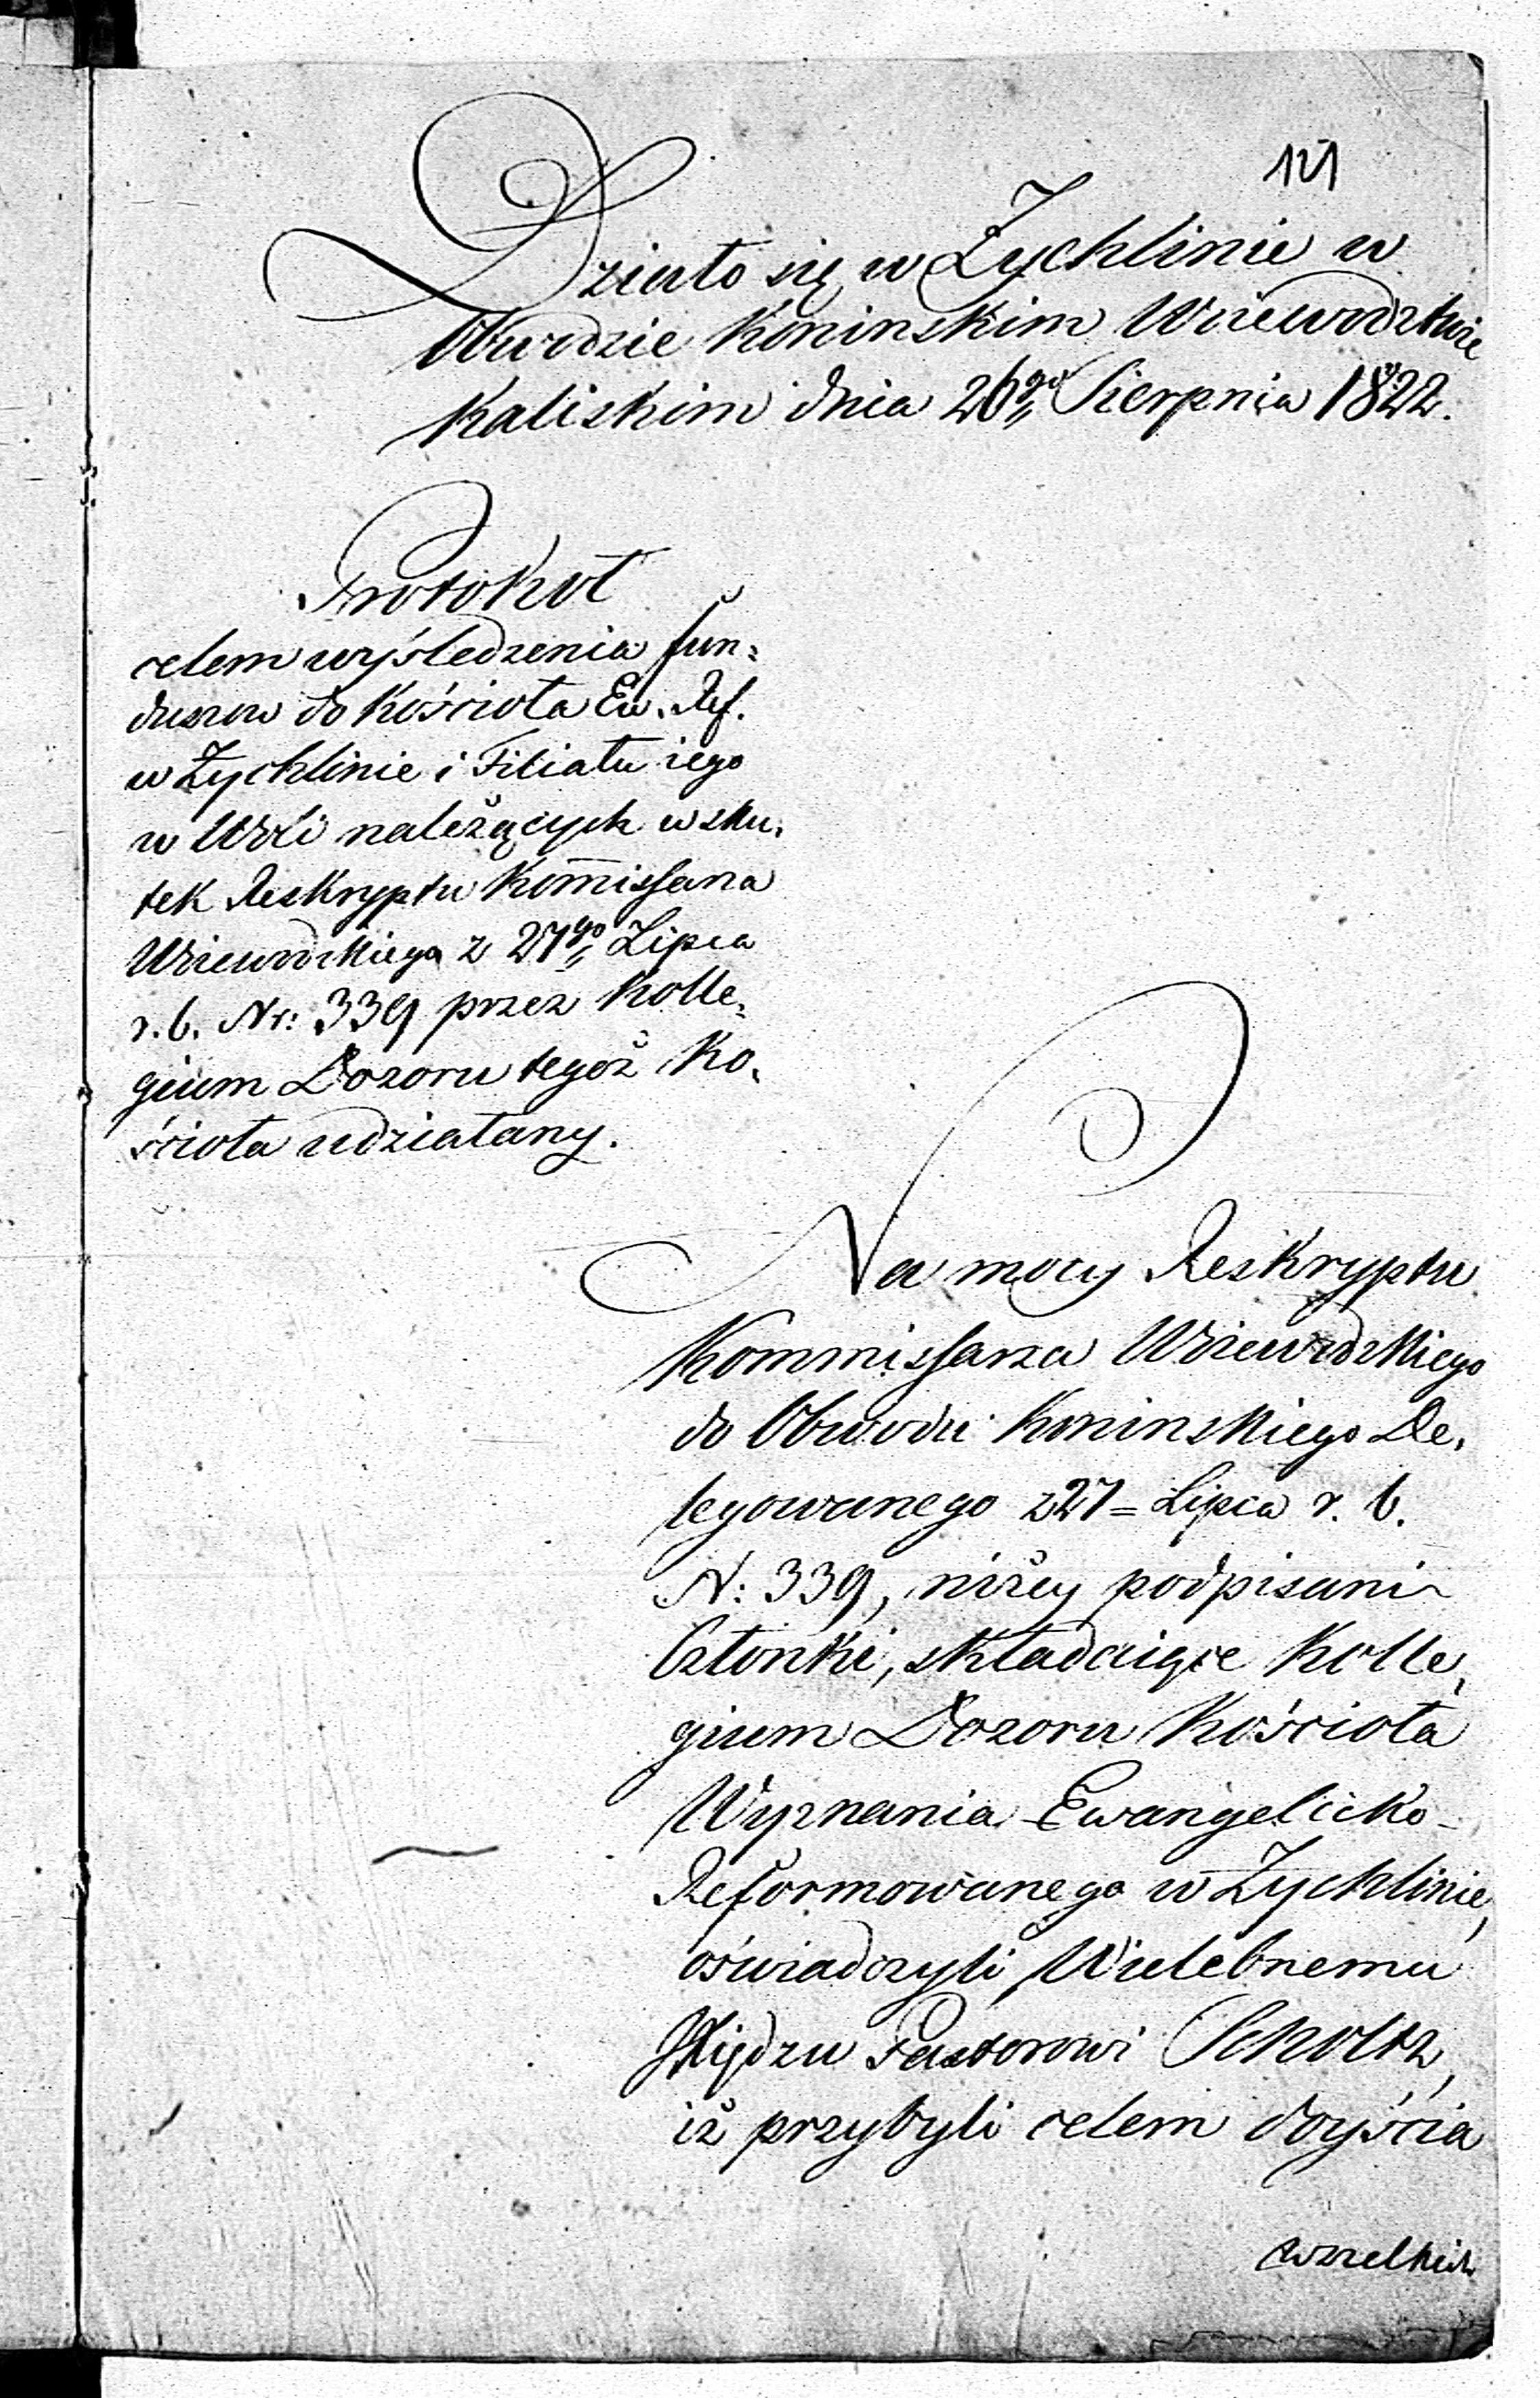 121
Działo się w Żychlinie w
Obwodzie Koninskim Woiewodztwie
Kaliskim dnia 26go Sierpnia 1822.
Protokół
celem wyśledzenia fun=
duszow do Kościoła Ew. Ref.
w Żychlinie i Filiału iego
w Woli należących w sku=
tek Reskryptu Kom̄issarza
Woiewodzkiego z 27go Lipca
r. b. Nr: 339 przez Kolle=
gium Dozoru tegoż Ko=
ścioła udziałany.
Na mocy Reskryptu
Kommissarza Woiewodzkiego
do Obwodu Koninskiego De=
legowanego z 27= Lipca r. b.
N: 339, niżey podpisani
Członki, składaiące Kolle=
gium Dozoru Kościoła
Wyznania Ewangelicko-
Reformowanego w Żychlinie,
oświadczyli Wielebnemu
Xiędzu Pastorowi Scholtz,
iż przybyli celem doyścia
wszelkich